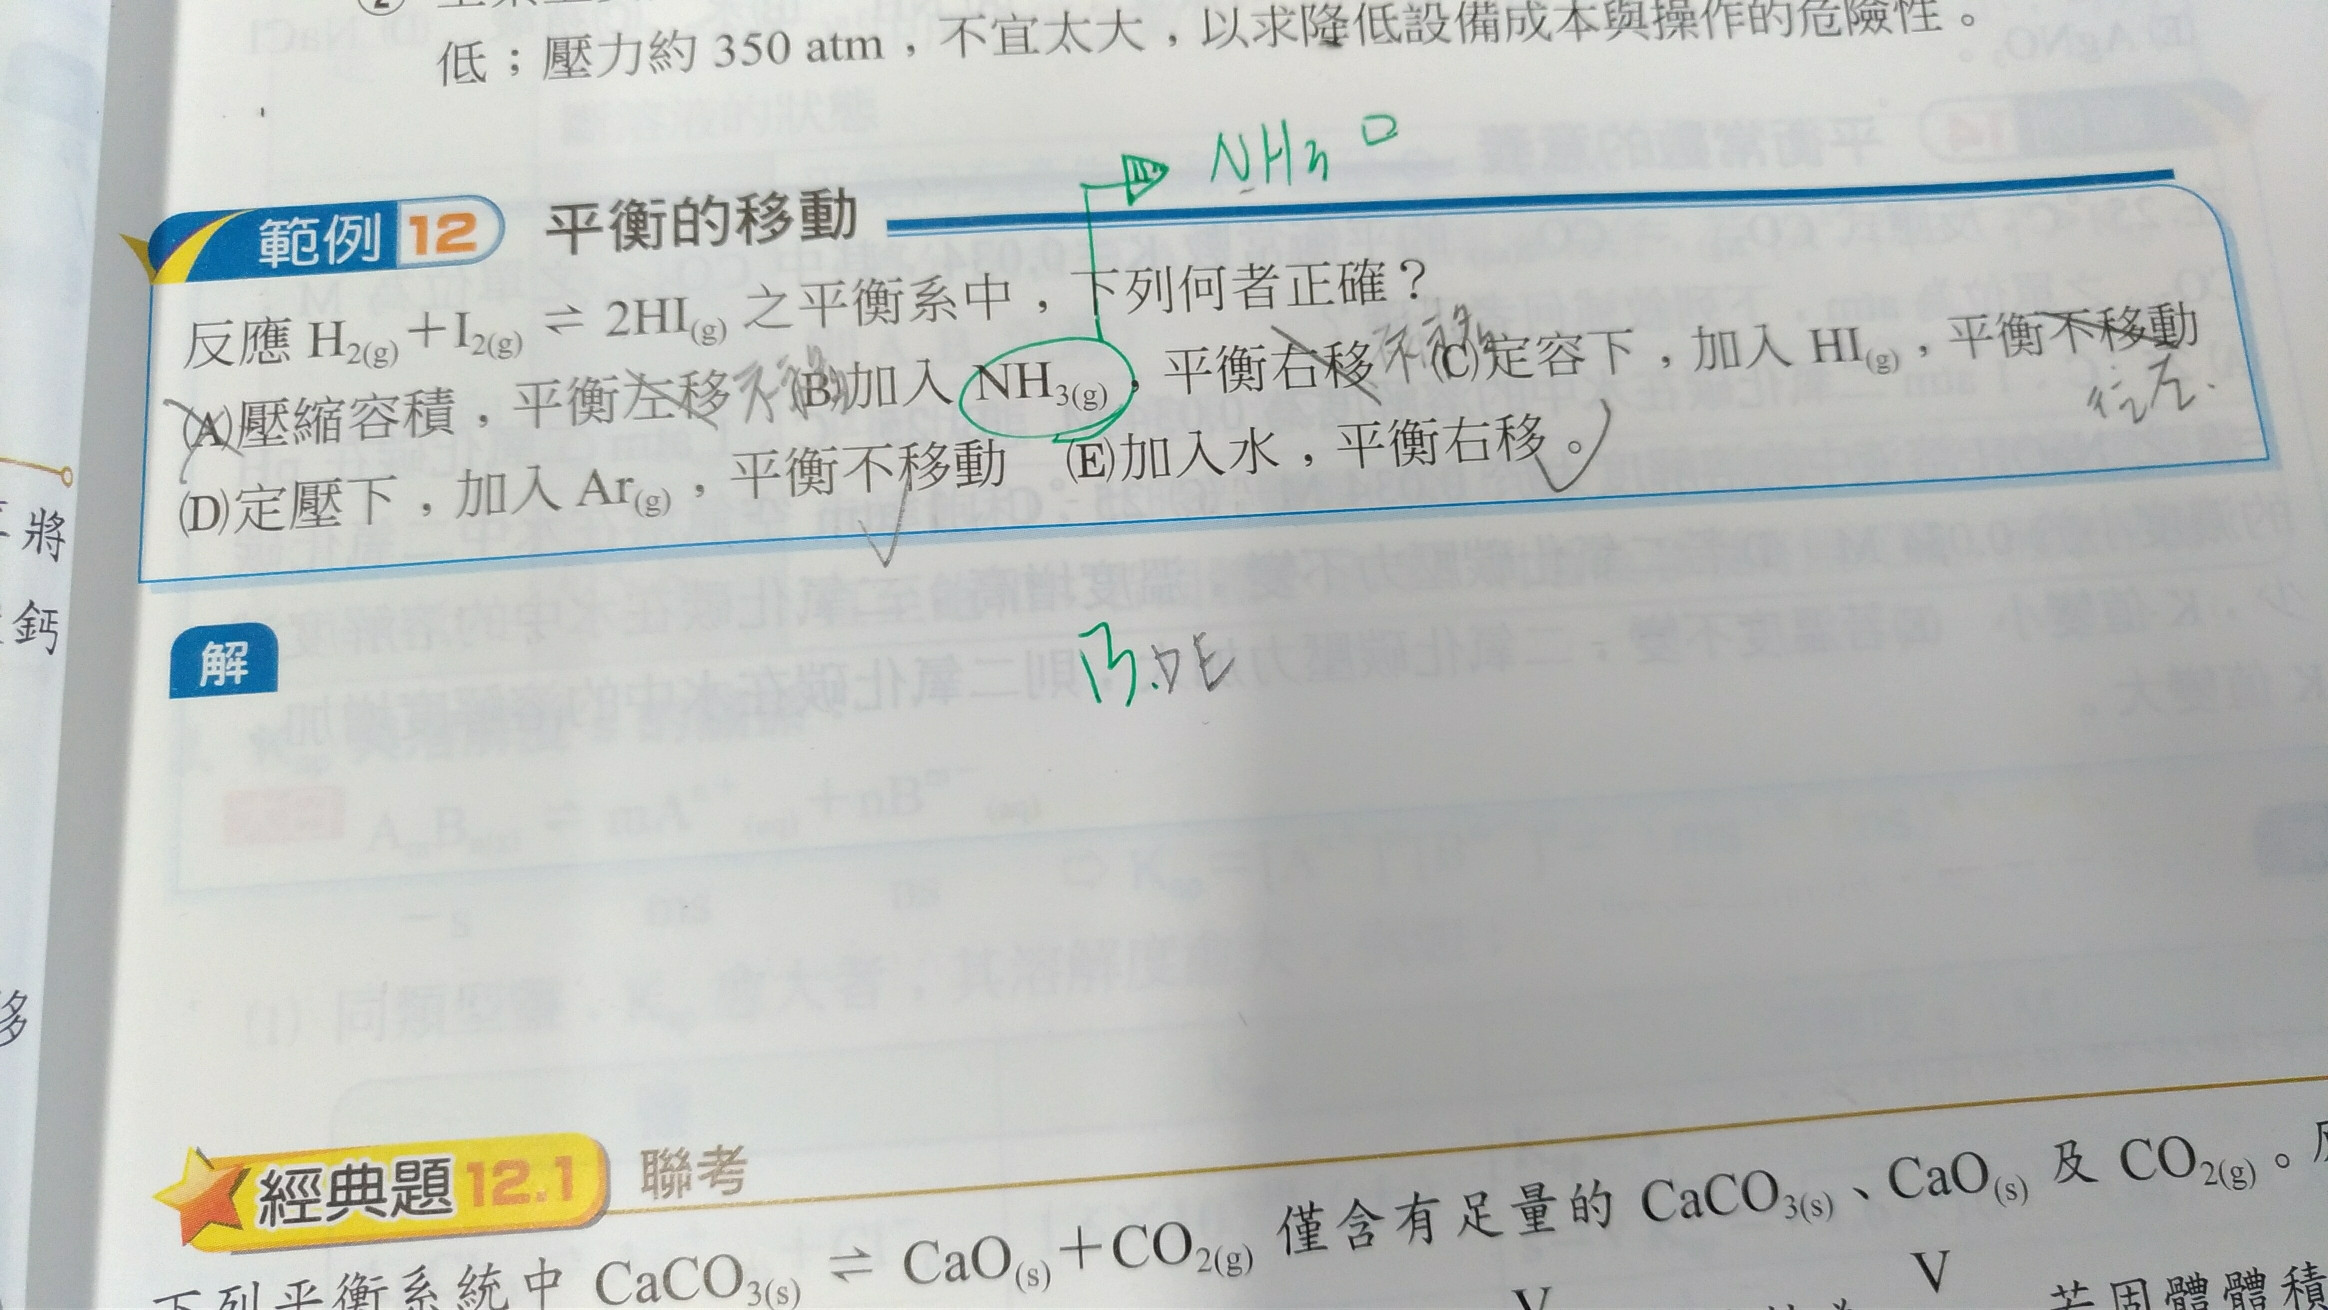 低；壓力約 350 atm，不宜太大，以求降低設備成本與操作的危險性。
NH₃
範例 12 平衡的移動
反應 H₂(g)＋I₂(g) ⇌ 2HI(g) 之平衡系中，下列何者正確？
(A)壓縮容積，平衡左移 不移 (B)加入 NH₃(g)，平衡右移 不移 (C)定容下，加入 HI(g)，平衡不移動
往左.
(D)定壓下，加入 Ar(g)，平衡不移動 (E)加入水，平衡右移。
將
鈣
解
B.DE
移
經典題 12.1 聯考
下列平衡系統中 CaCO₃(s) ⇌ CaO(s)＋CO₂(g) 僅含有足量的 CaCO₃(s)、CaO(s) 及 CO₂(g)。
V V 若固體體積